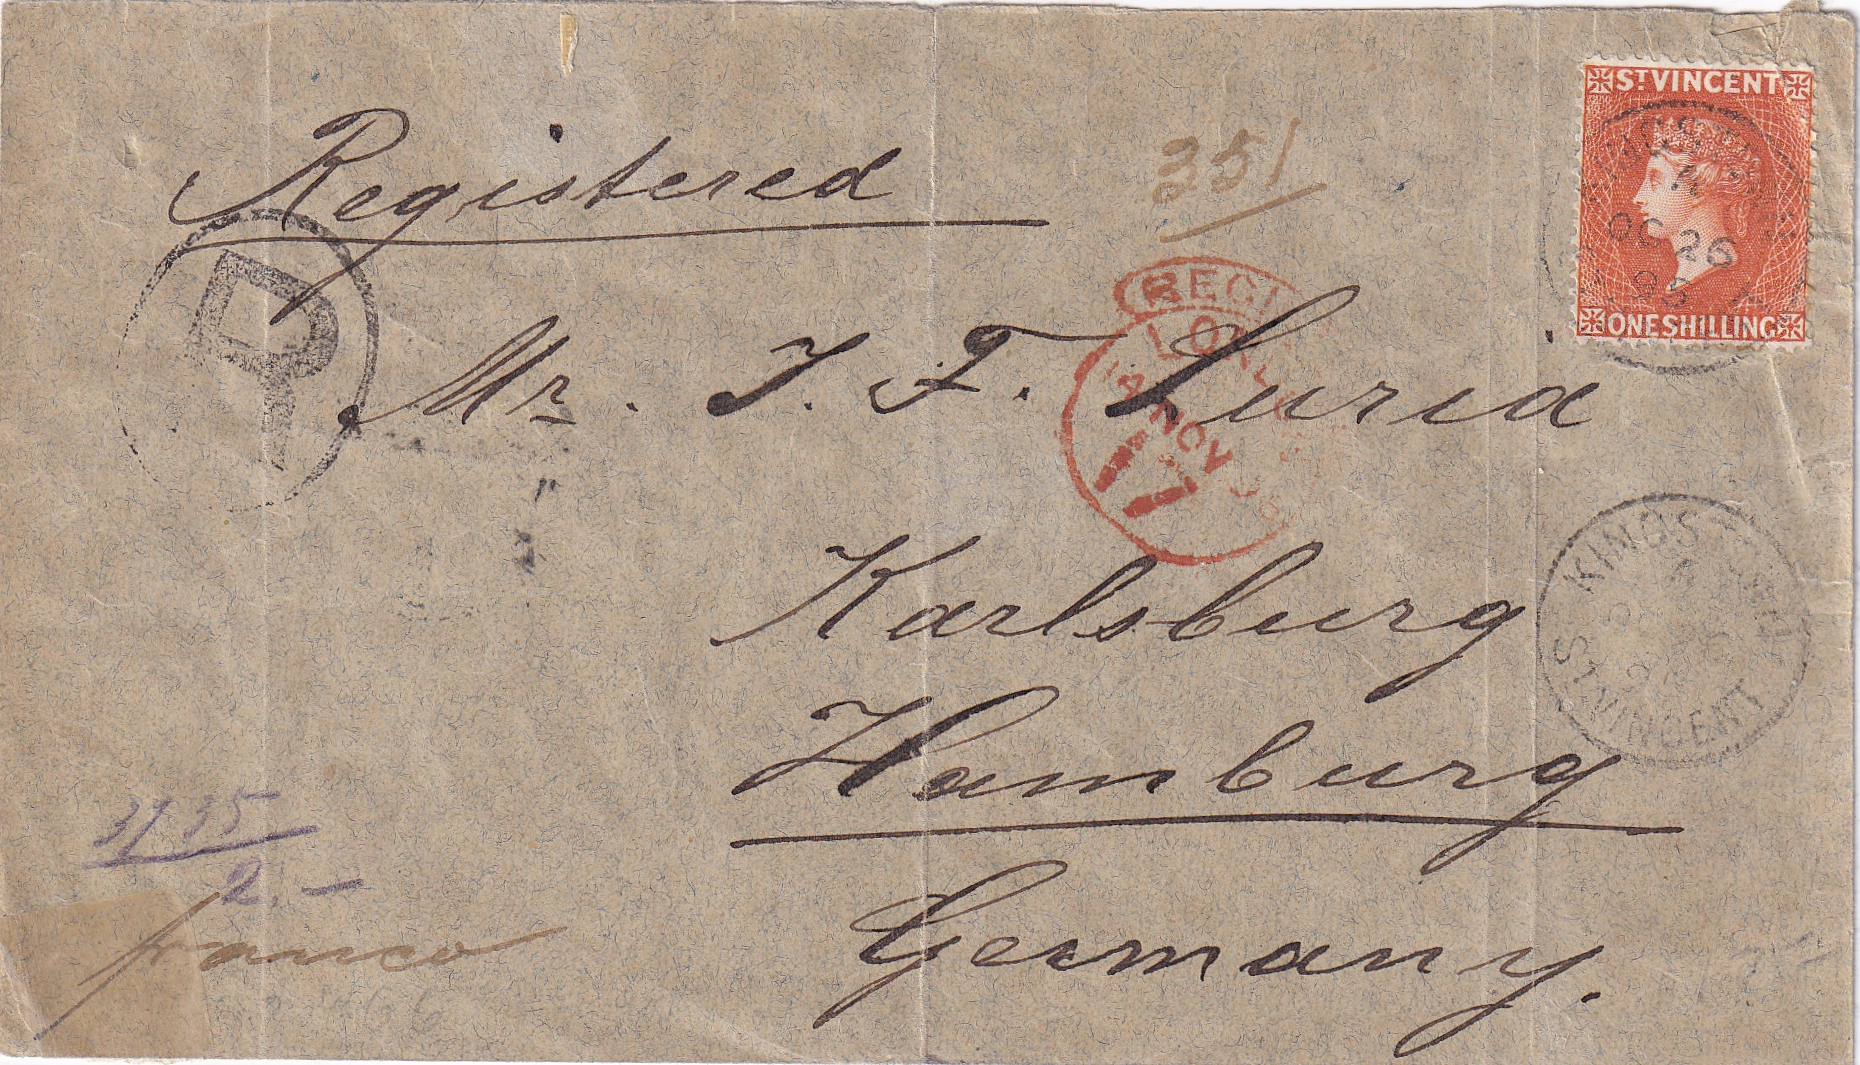 Registered
351
ST VINCENT
KINGSTOWN
A
OC 26
95
ONE SHILLING
R
REGI
LONDON
NOV 95
17
Mr. J. F. Lurid
Karlsburg
KINGSTOWN
ST. VINCENT
Hamburg
Germany.
35
2. –
franco